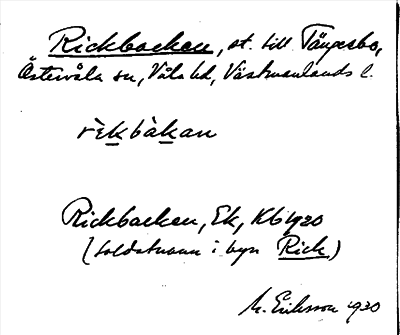 Rickbacken, st. till Tängesbo,
Östervåla sn, Våla hd, Västmanlands l.
rèkbàkan
Rickbacken, Ek, Kb 1920
(soldatnamn i byn Rick)
M. Eriksson 1930